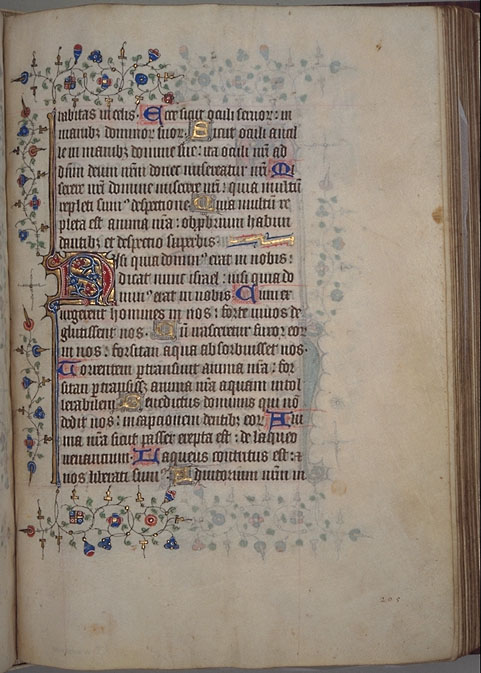 habitas in celis. Ecce sicut oculi seruor: in
manibz dominor suor. Sicut oculi ancil
le in manibz domine sue: ita oculi nri ad
dnm deum nrm donec misereatur nri. Mi
serere nri domine miserere nri: quia multum
repleti sumus despectione. Quia multum re
pleta est anima nra: obprobrium habun
dantibz et despectio superbis.
Nisi quia dominus erat in nobis:
dicat nunc israel: nisi quia do
minus erat in nobis. Cum ex
urgerent homines in nos: forte uiuos de
glutissent nos. Cum irasceretur furor eor
in nos: forsitan aqua absorbuisset nos.
Torrentem ptransiuit anima nra: for
sitan ptransisset anima nra aquam intol
lerabilem. Benedictus dominus qui no
dedit nos: in captionem dentibz eor. Ani
ma nra sicut passer erepta est: de laqueo
uenantium. Laqueus contritus est: z
nos liberati sumus. Adiutorium nrm in
205